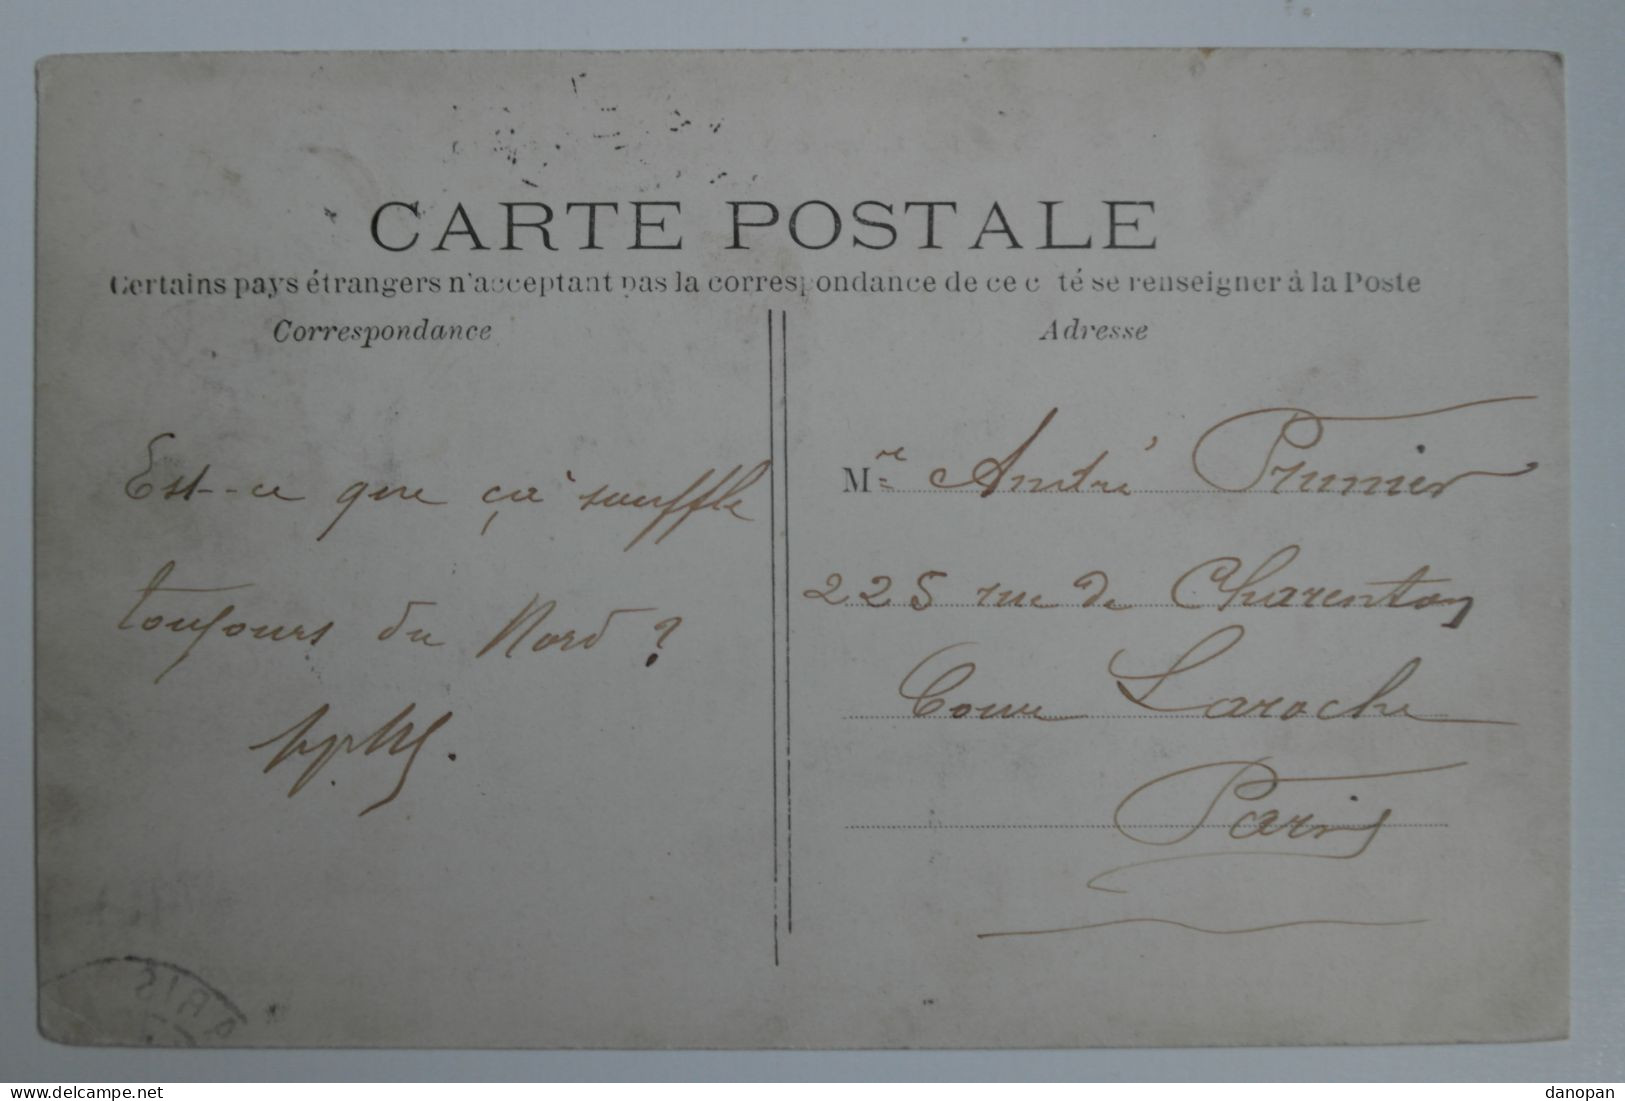 CARTE POSTALE
Certains pays étrangers n'acceptant pas la correspondance de ce c té se renseigner à la Poste
Correspondance
Adresse
Est-ce que ça souffle
toujours du Nord ?
Mre André Prunier
225 rue de Charenton
Cour Laroche
Paris
PARIS
delcampe.net
danopan